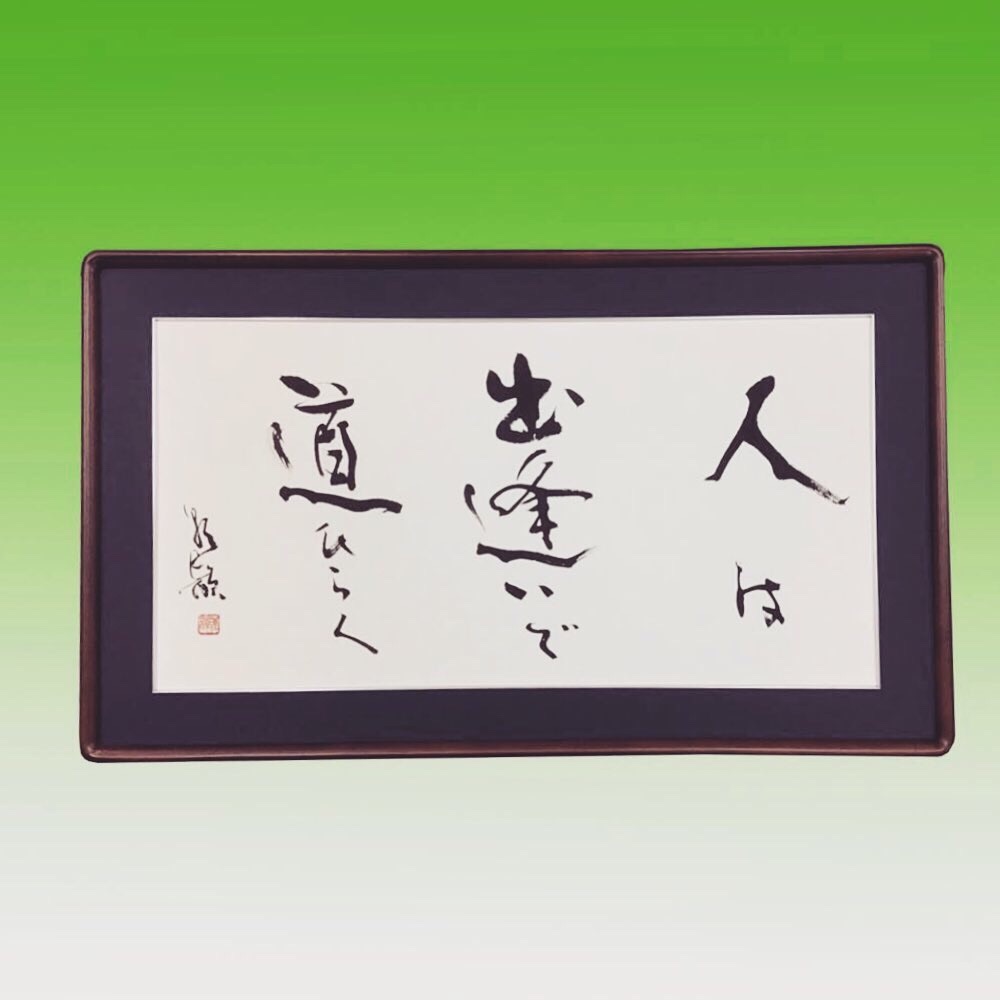 人は
出逢いで
道ひらく